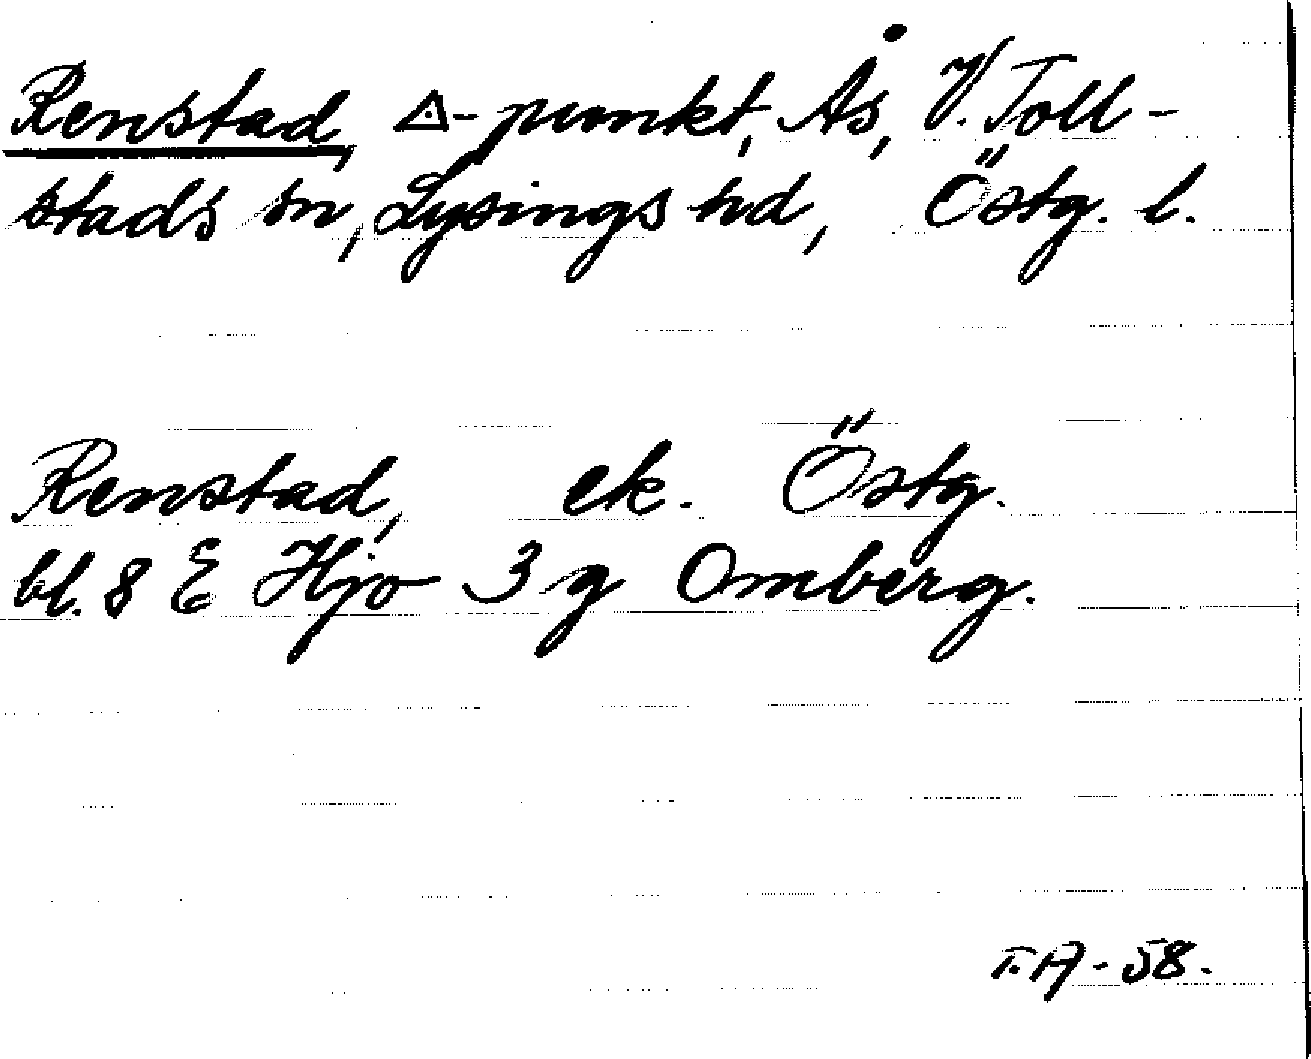 Renstad, △-punkt, Ås, V. Toll-
stads sn, Lysings hd, Östg. l.
Renstad, ek. Östg.
bl. 8 E Hjo 3 g Omberg.
T.A-58.